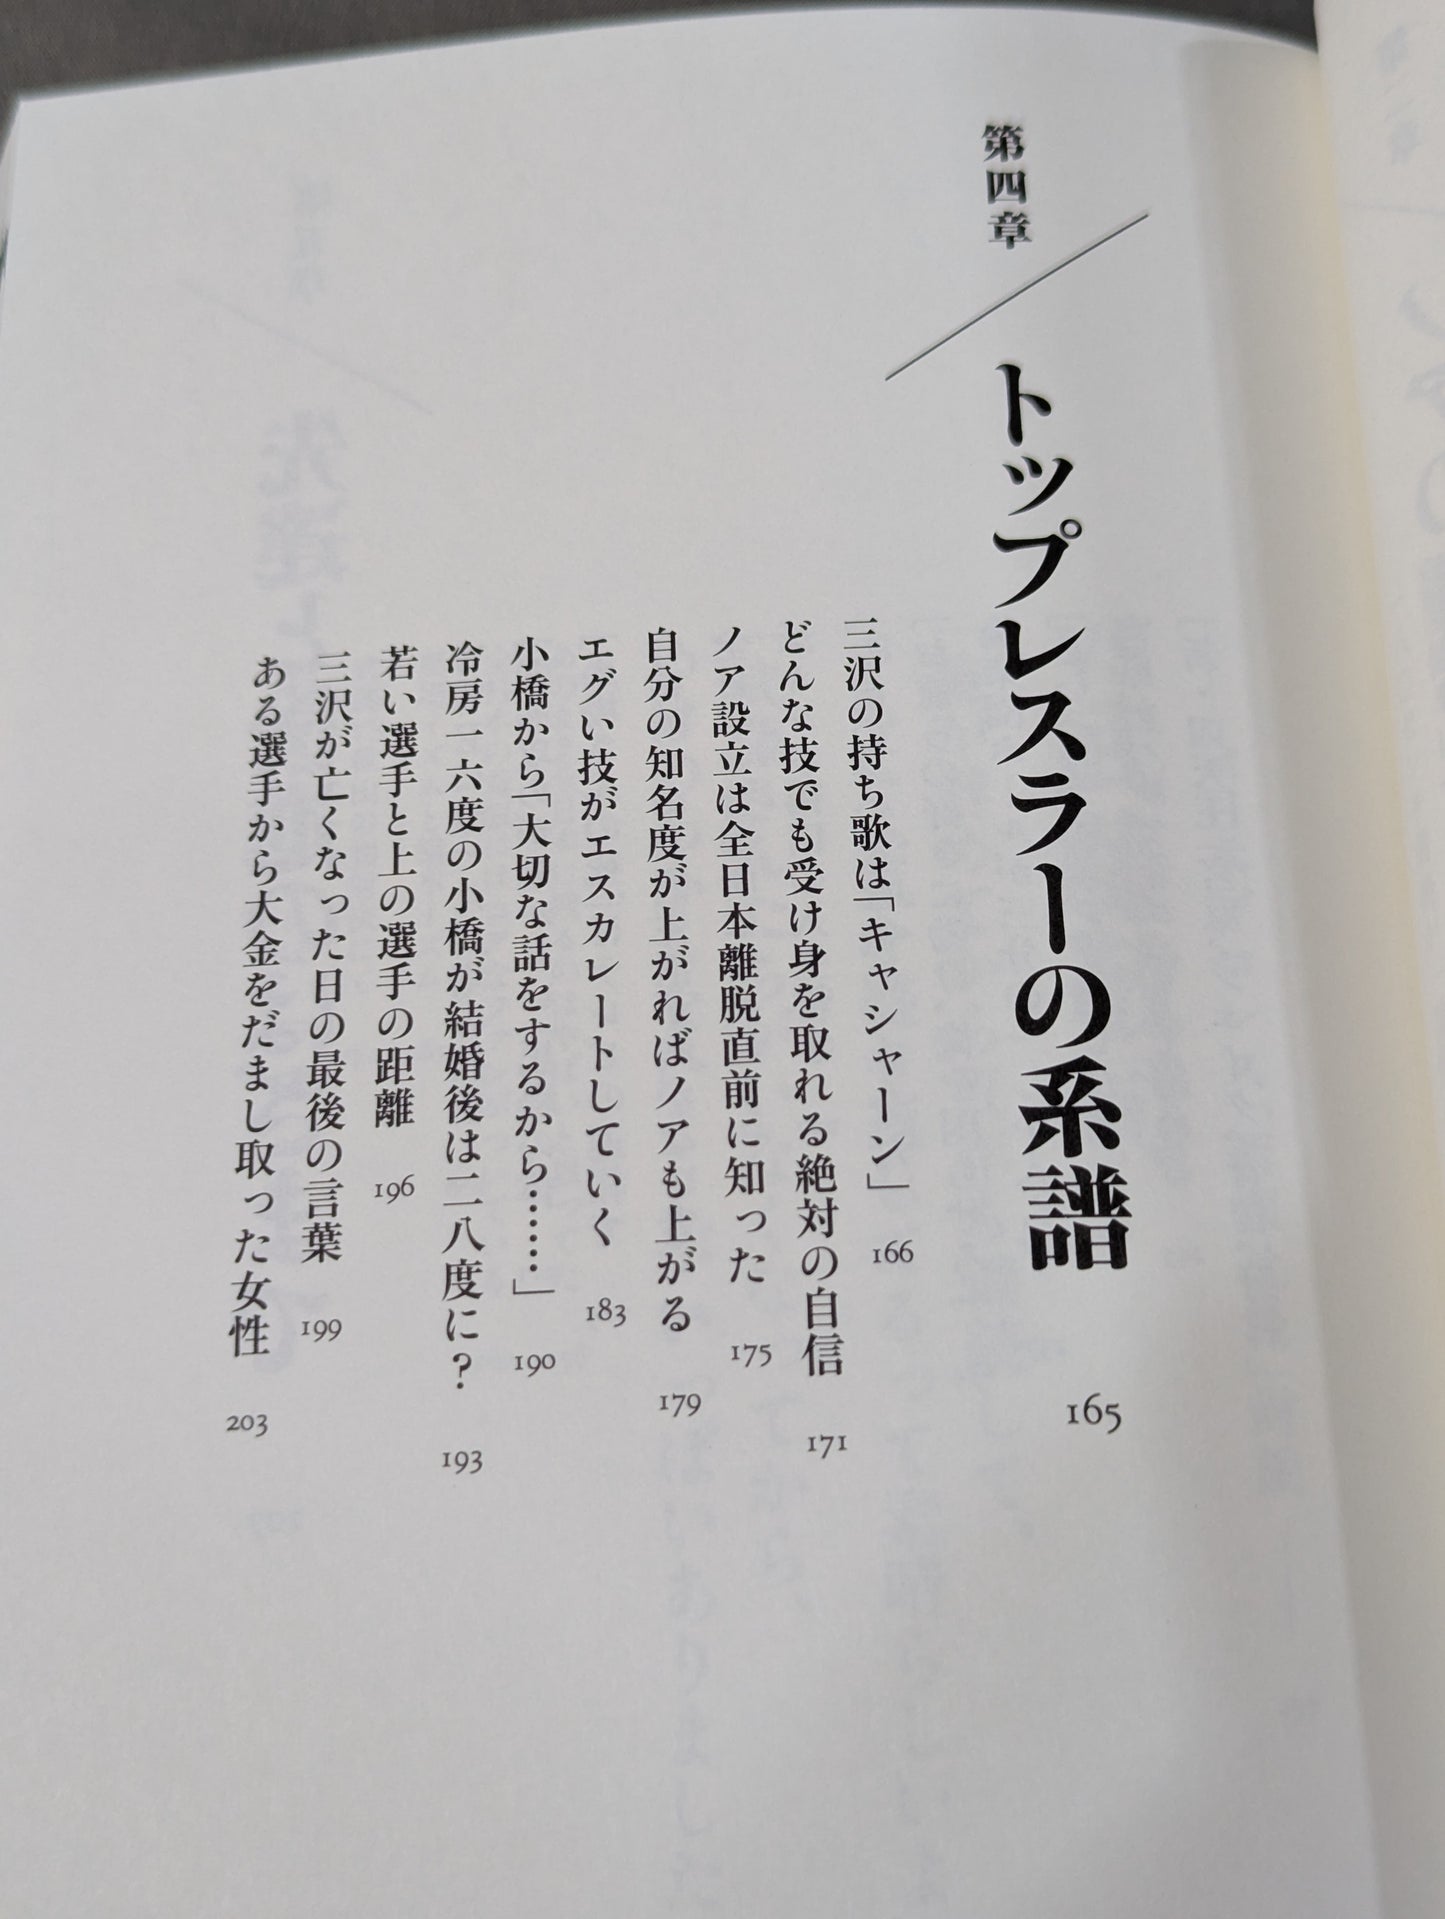 第四章
トップレスラーの系譜 165
三沢の持ち歌は「キャシャーン」 166
どんな技でも受け身を取れる絶対の自信 171
ノア設立は全日本離脱直前に知った 175
自分の知名度が上がればノアも上がる 179
エグい技がエスカレートしていく 183
小橋から「大切な話をするから……」 190
冷房一六度の小橋が結婚後は二八度に? 193
若い選手と上の選手の距離 196
三沢が亡くなった日の最後の言葉 199
ある選手から大金をだまし取った女性 203